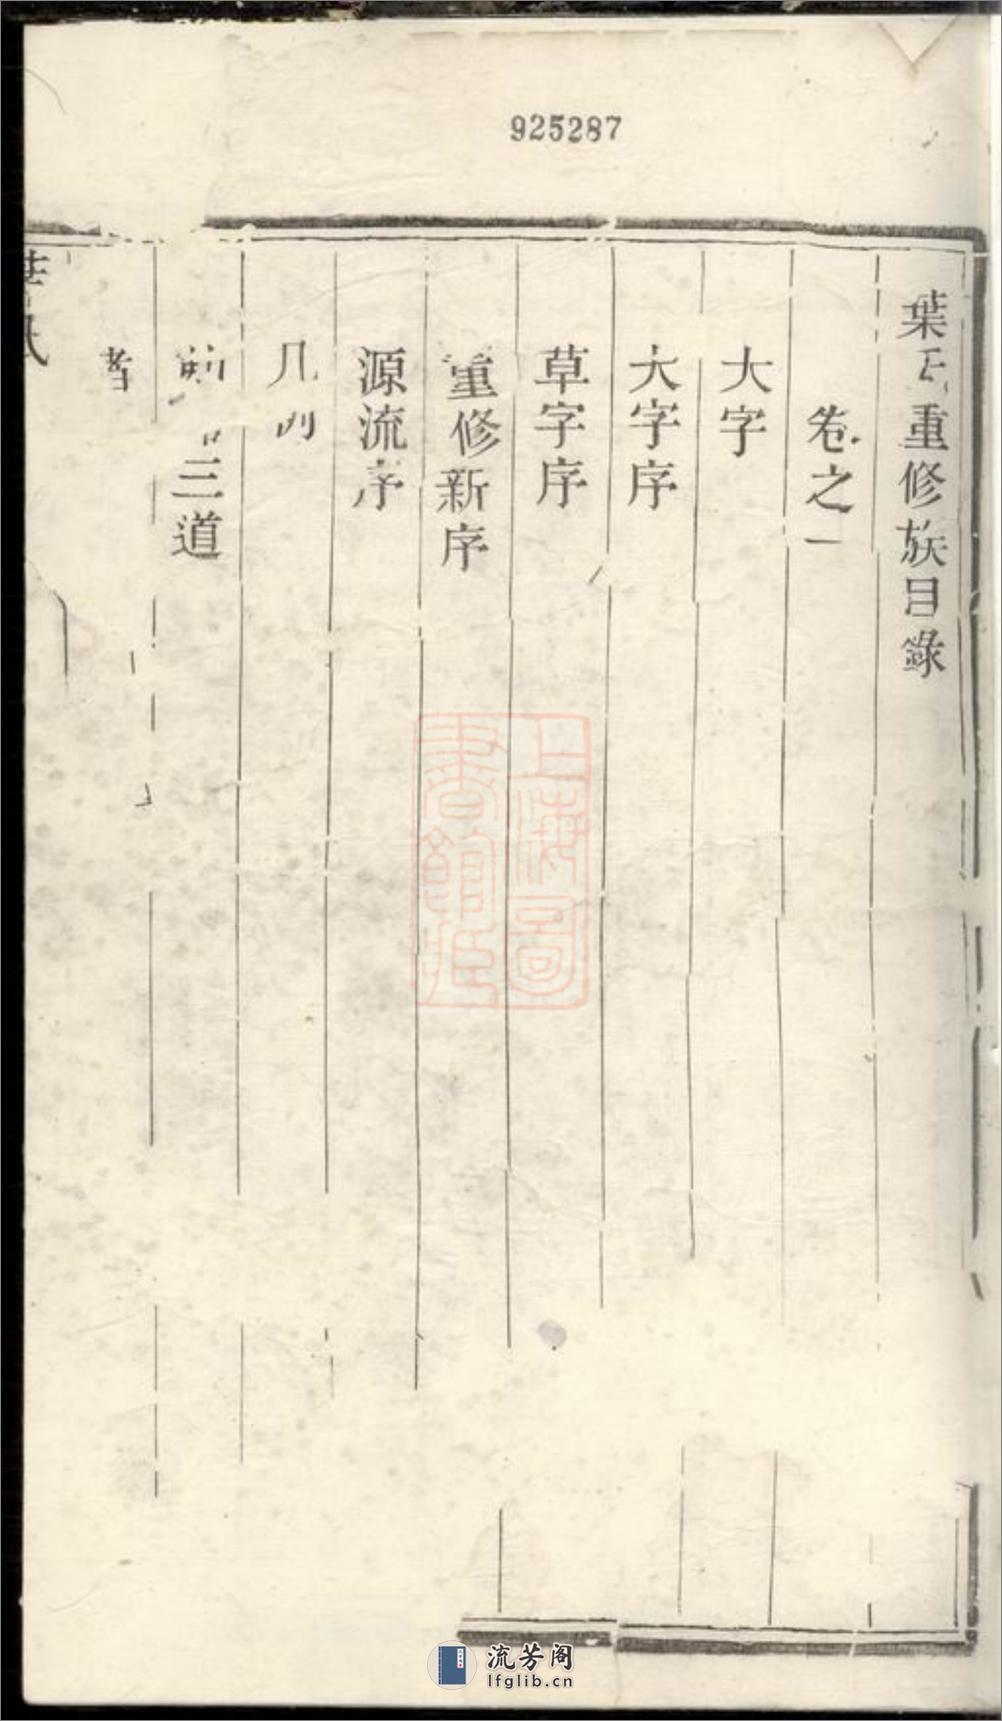 925287
葉氏重修族目錄
卷之一
大字
大字序
草字序
重修新序
源流序
凡例
三道
葉氏
上海圖書館藏
流芳阁
lfglib.cn